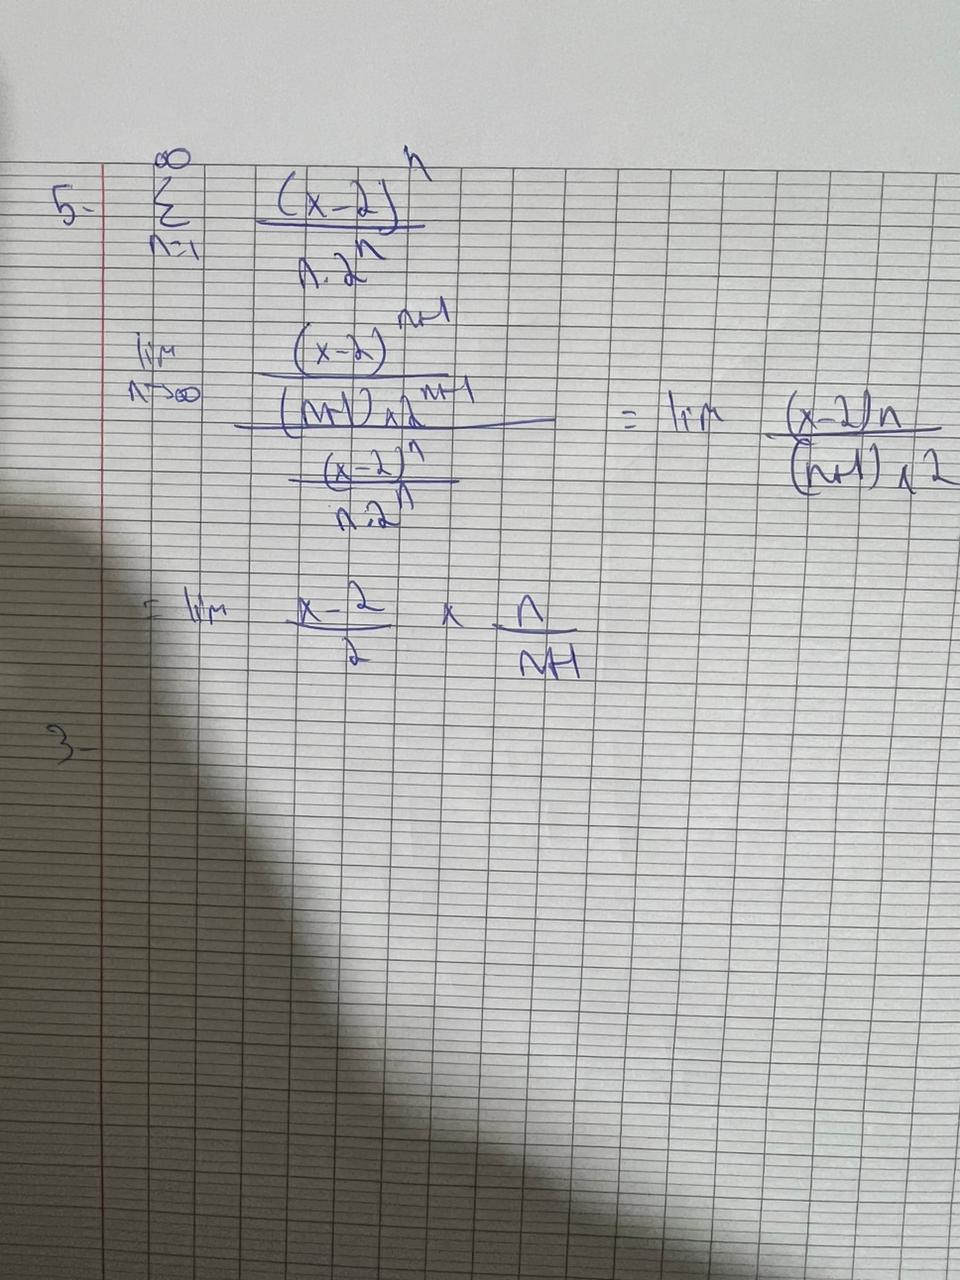 5- ∞ Σ n=1 (x-2)^n / n.2^n
lim n→∞ ((x-2)^n+1 / (n+1)×2^n+1) / ((x-2)^n / n.2^n) = lim (x-2)n / (n+1)×2
= lim x-2 / 2 × n / n+1
3-